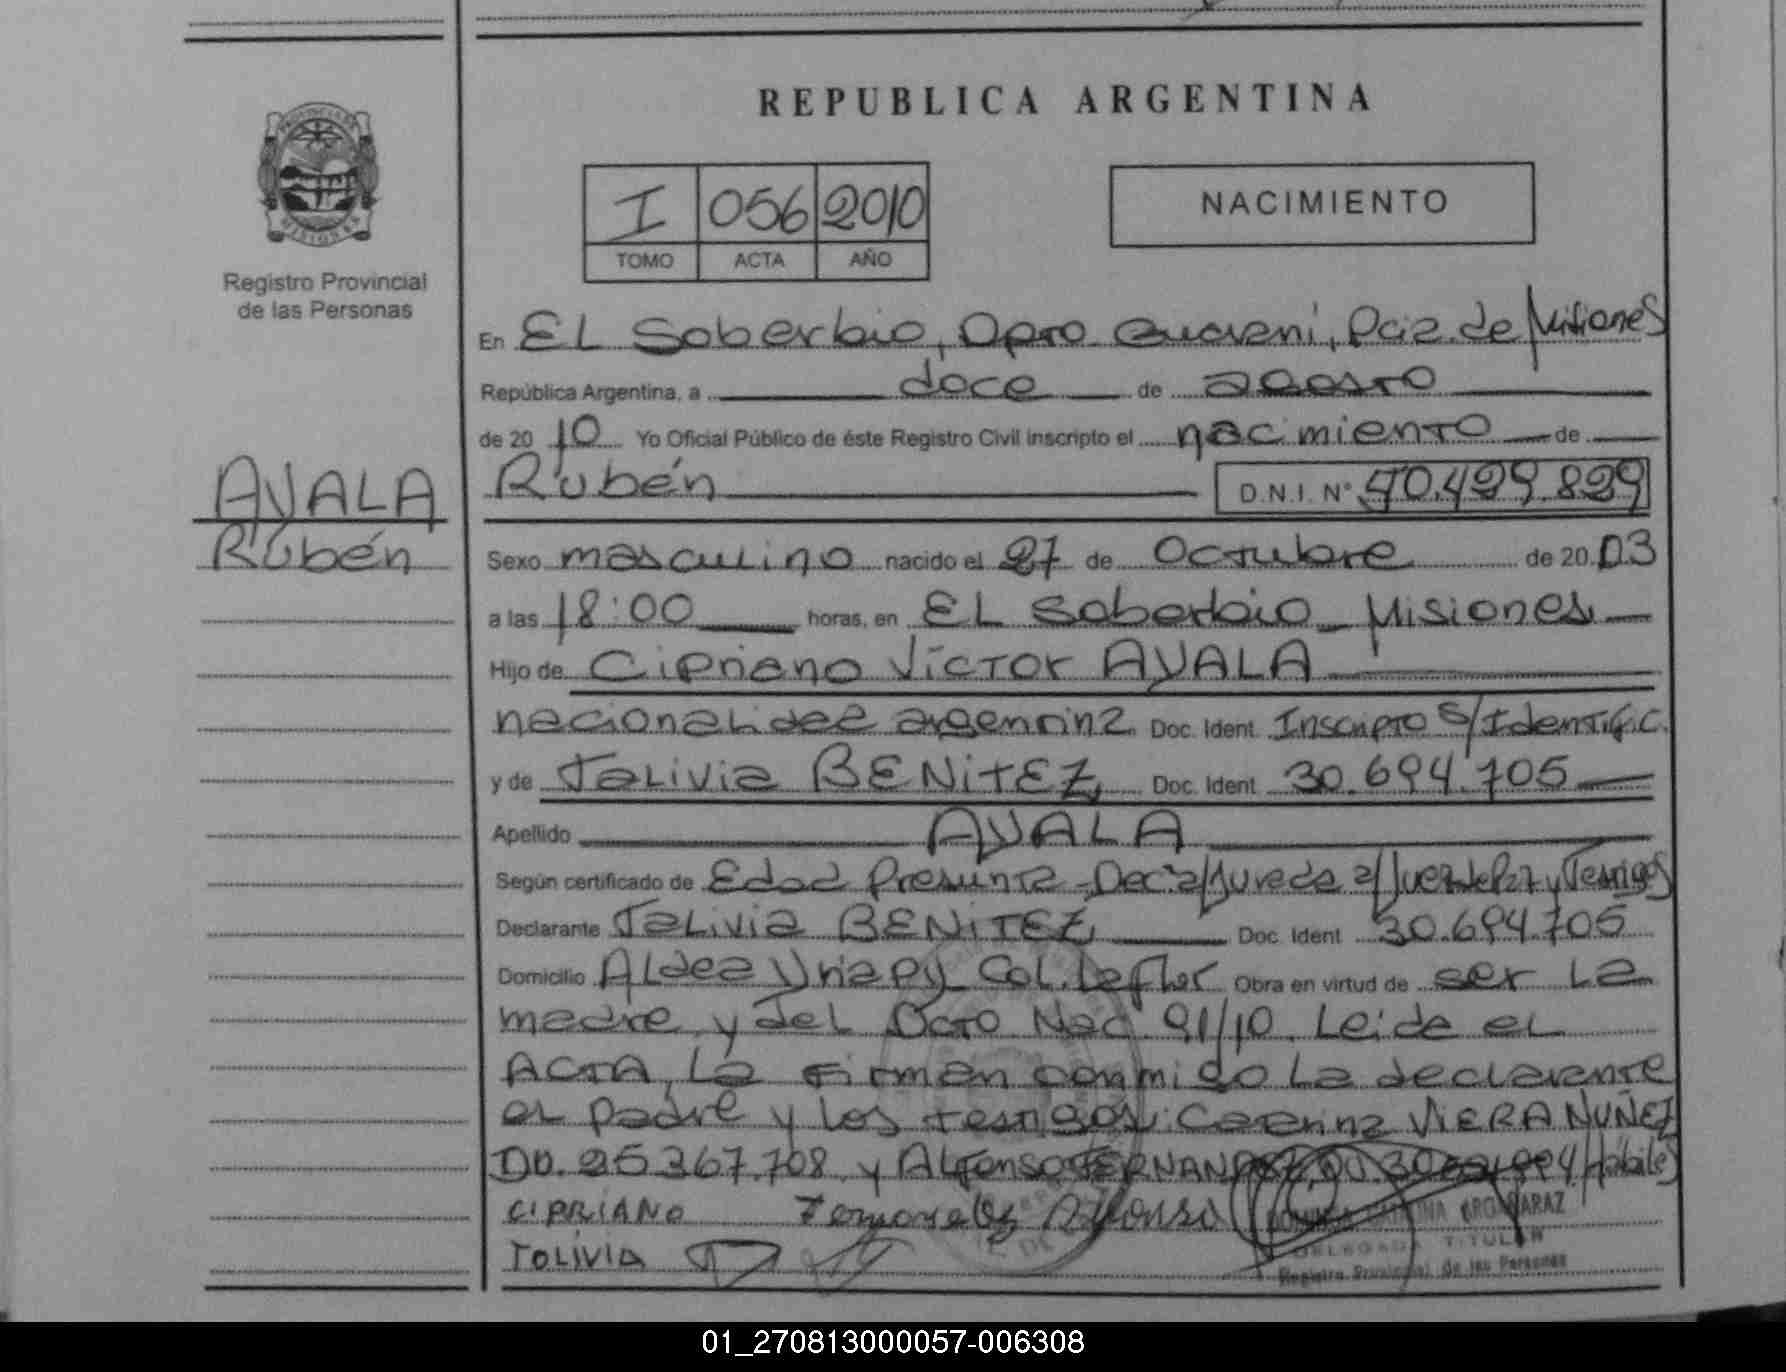 REPUBLICA ARGENTINA
PROVINCIA DE
MISIONES
Registro Provincial
de las Personas
I 056 2010
TOMO ACTA AÑO
NACIMIENTO
En EL Soberbio, Dpto Guarani, Pcia. de Misiones
República Argentina, a doce de agosto
de 2010 Yo Oficial Público de éste Registro Civil inscripto el nacimiento de
AYALA
Rubén
Rubén D.N.I. N° 40.429.829
Sexo masculino nacido el 27 de Octubre de 2003
a las 18:00 horas, en EL Soberbio - Misiones
Hijo de Cipriano Víctor AYALA
nacionalidad argentina Doc. Ident Inscripto S/Identific.
y de Talivia BENITEZ Doc. Ident 30.694.705
Apellido AYALA
Según certificado de Edad Presunta - Dec. a/Jurada a/Juez de Paz y Testigos
Declarante Talivia BENITEZ Doc. Ident 30.694.705
Domicilio Aldea Yriapy Col. La Flor Obra en virtud de ser la
madre y del Dcto Nac 91/10. Leida el
ACTA, La firman conmigo la declarante
el padre y los testigos: Carina VIERA NUÑEZ
DU. 25.367.708 y Alfonso FERNANDEZ, DU. Hábiles
CIPRIANO Alfonso
TOLIVIA
ARGAÑARAZ
DELEGADA TITULAR
Registro Provincial de las Personas
01_270813000057-006308